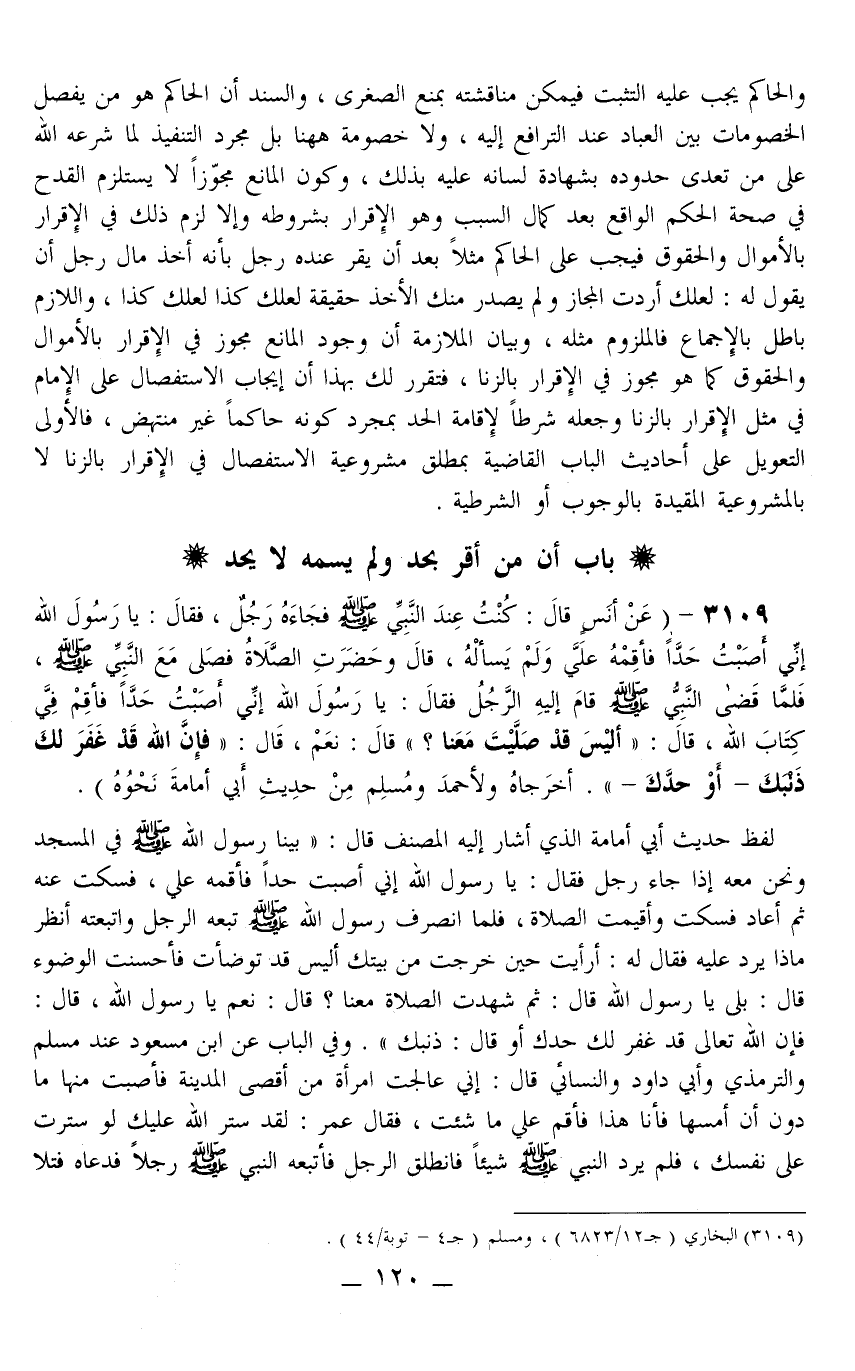 والحاكم يجب عليه التثبت فيمكن مناقشته بمنع الصغرى ، والسند أن الحاكم هو من يفصل
الخصومات بين العباد عند الترافع إليه ، ولا خصومة ههنا بل مجرد التنفيذ لما شرعه الله
على من تعدى حدوده بشهادة لسانه عليه بذلك ، وكون المانع مجوّزاً لا يستلزم القدح
في صحة الحكم الواقع بعد كمال السبب وهو الإقرار بشروطه وإلا لزم ذلك في الإقرار
بالأموال والحقوق فيجب على الحاكم مثلاً بعد أن يقر عنده رجل بأنه أخذ مال رجل أن
يقول له : لعلك أردت المجاز ولم يصدر منك الأخذ حقيقة لعلك كذا لعلك كذا ، واللازم
باطل بالإجماع فالملزوم مثله ، وبيان الملازمة أن وجود المانع مجوز في الإقرار بالأموال
والحقوق كما هو مجوز في الإقرار بالزنا ، فتقرر لك بهذا أن إيجاب الاستفصال على الإمام
في مثل الإقرار بالزنا وجعله شرطاً لإقامة الحد بمجرد كونه حاكماً غير منتهض ، فالأولى
التعويل على أحاديث الباب القاضية بمطلق مشروعية الاستفصال في الإقرار بالزنا لا
بالمشروعية المقيدة بالوجوب أو الشرطية .
باب أن من أقر بحد ولم يسمه لا يحد
٣١٠٩ – ( عَنْ أنَسٍ قالَ : كُنْتُ عِندَ النَّبِيِّ ﷺ فجَاءَهُ رَجُلٌ ، فقالَ : يا رَسُولَ الله
إنِّي أَصَبْتُ حَدَّاً فأقِمْهُ علَيَّ وَلَمْ يَسألْهُ ، قال وحَضَرَتِ الصَّلَاةُ فصَلى مَعَ النَّبِيِّ ﷺ ،
فَلمَّا قَضىٰ النَّبِيُّ ﷺ قامَ إليهِ الرَّجُلُ فقالَ : يا رَسُولَ الله إنِّي أَصَبْتُ حَدَّاً فأقِمْ فِيَّ
كِتَابَ الله ، قالَ : « أليْسَ قدْ صَلَّيْتَ مَعَنا ؟ » قالَ : نعَمْ ، قال : « فإنَّ الله قَدْ غَفَرَ لكَ
ذَنْبَكَ – أَوْ حدَّكَ – » . أخرَجاهُ ولأحمدَ ومُسلِم مِنْ حدِيثِ أَبي أمامةَ نَحْوُهُ ) .
لفظ حديث أبي أمامة الذي أشار إليه المصنف قال : « بينا رسول الله ﷺ في المسجد
ونحن معه إذا جاء رجل فقال : يا رسول الله إني أصبت حداً فأقمه علي ، فسكت عنه
ثم أعاد فسكت وأقيمت الصلاة ، فلما انصرف رسول الله ﷺ تبعه الرجل واتبعته أنظر
ماذا يرد عليه فقال له : أرأيت حين خرجت من بيتك أليس قد توضأت فأحسنت الوضوء
قال : بلى يا رسول الله قال : ثم شهدت الصلاة معنا ؟ قال : نعم يا رسول الله ، قال :
فإن الله تعالى قد غفر لك حدك أو قال : ذنبك » . وفي الباب عن ابن مسعود عند مسلم
والترمذي وأبي داود والنسائي قال : إني عالجت امرأة من أقصى المدينة فأصبت منها ما
دون أن أمسها فأنا هذا فأقم علي ما شئت ، فقال عمر : لقد ستر الله عليك لو سترت
على نفسك ، فلم يرد النبي ﷺ شيئاً فانطلق الرجل فأتبعه النبي ﷺ رجلاً فدعاه فتلا
(٣١٠٩) البخاري ( جـ١٢/ ٦٨٢٣ ) ، ومسلم ( جـ٤ – توبة/ ٤٤ ) .
– ١٢٠ –